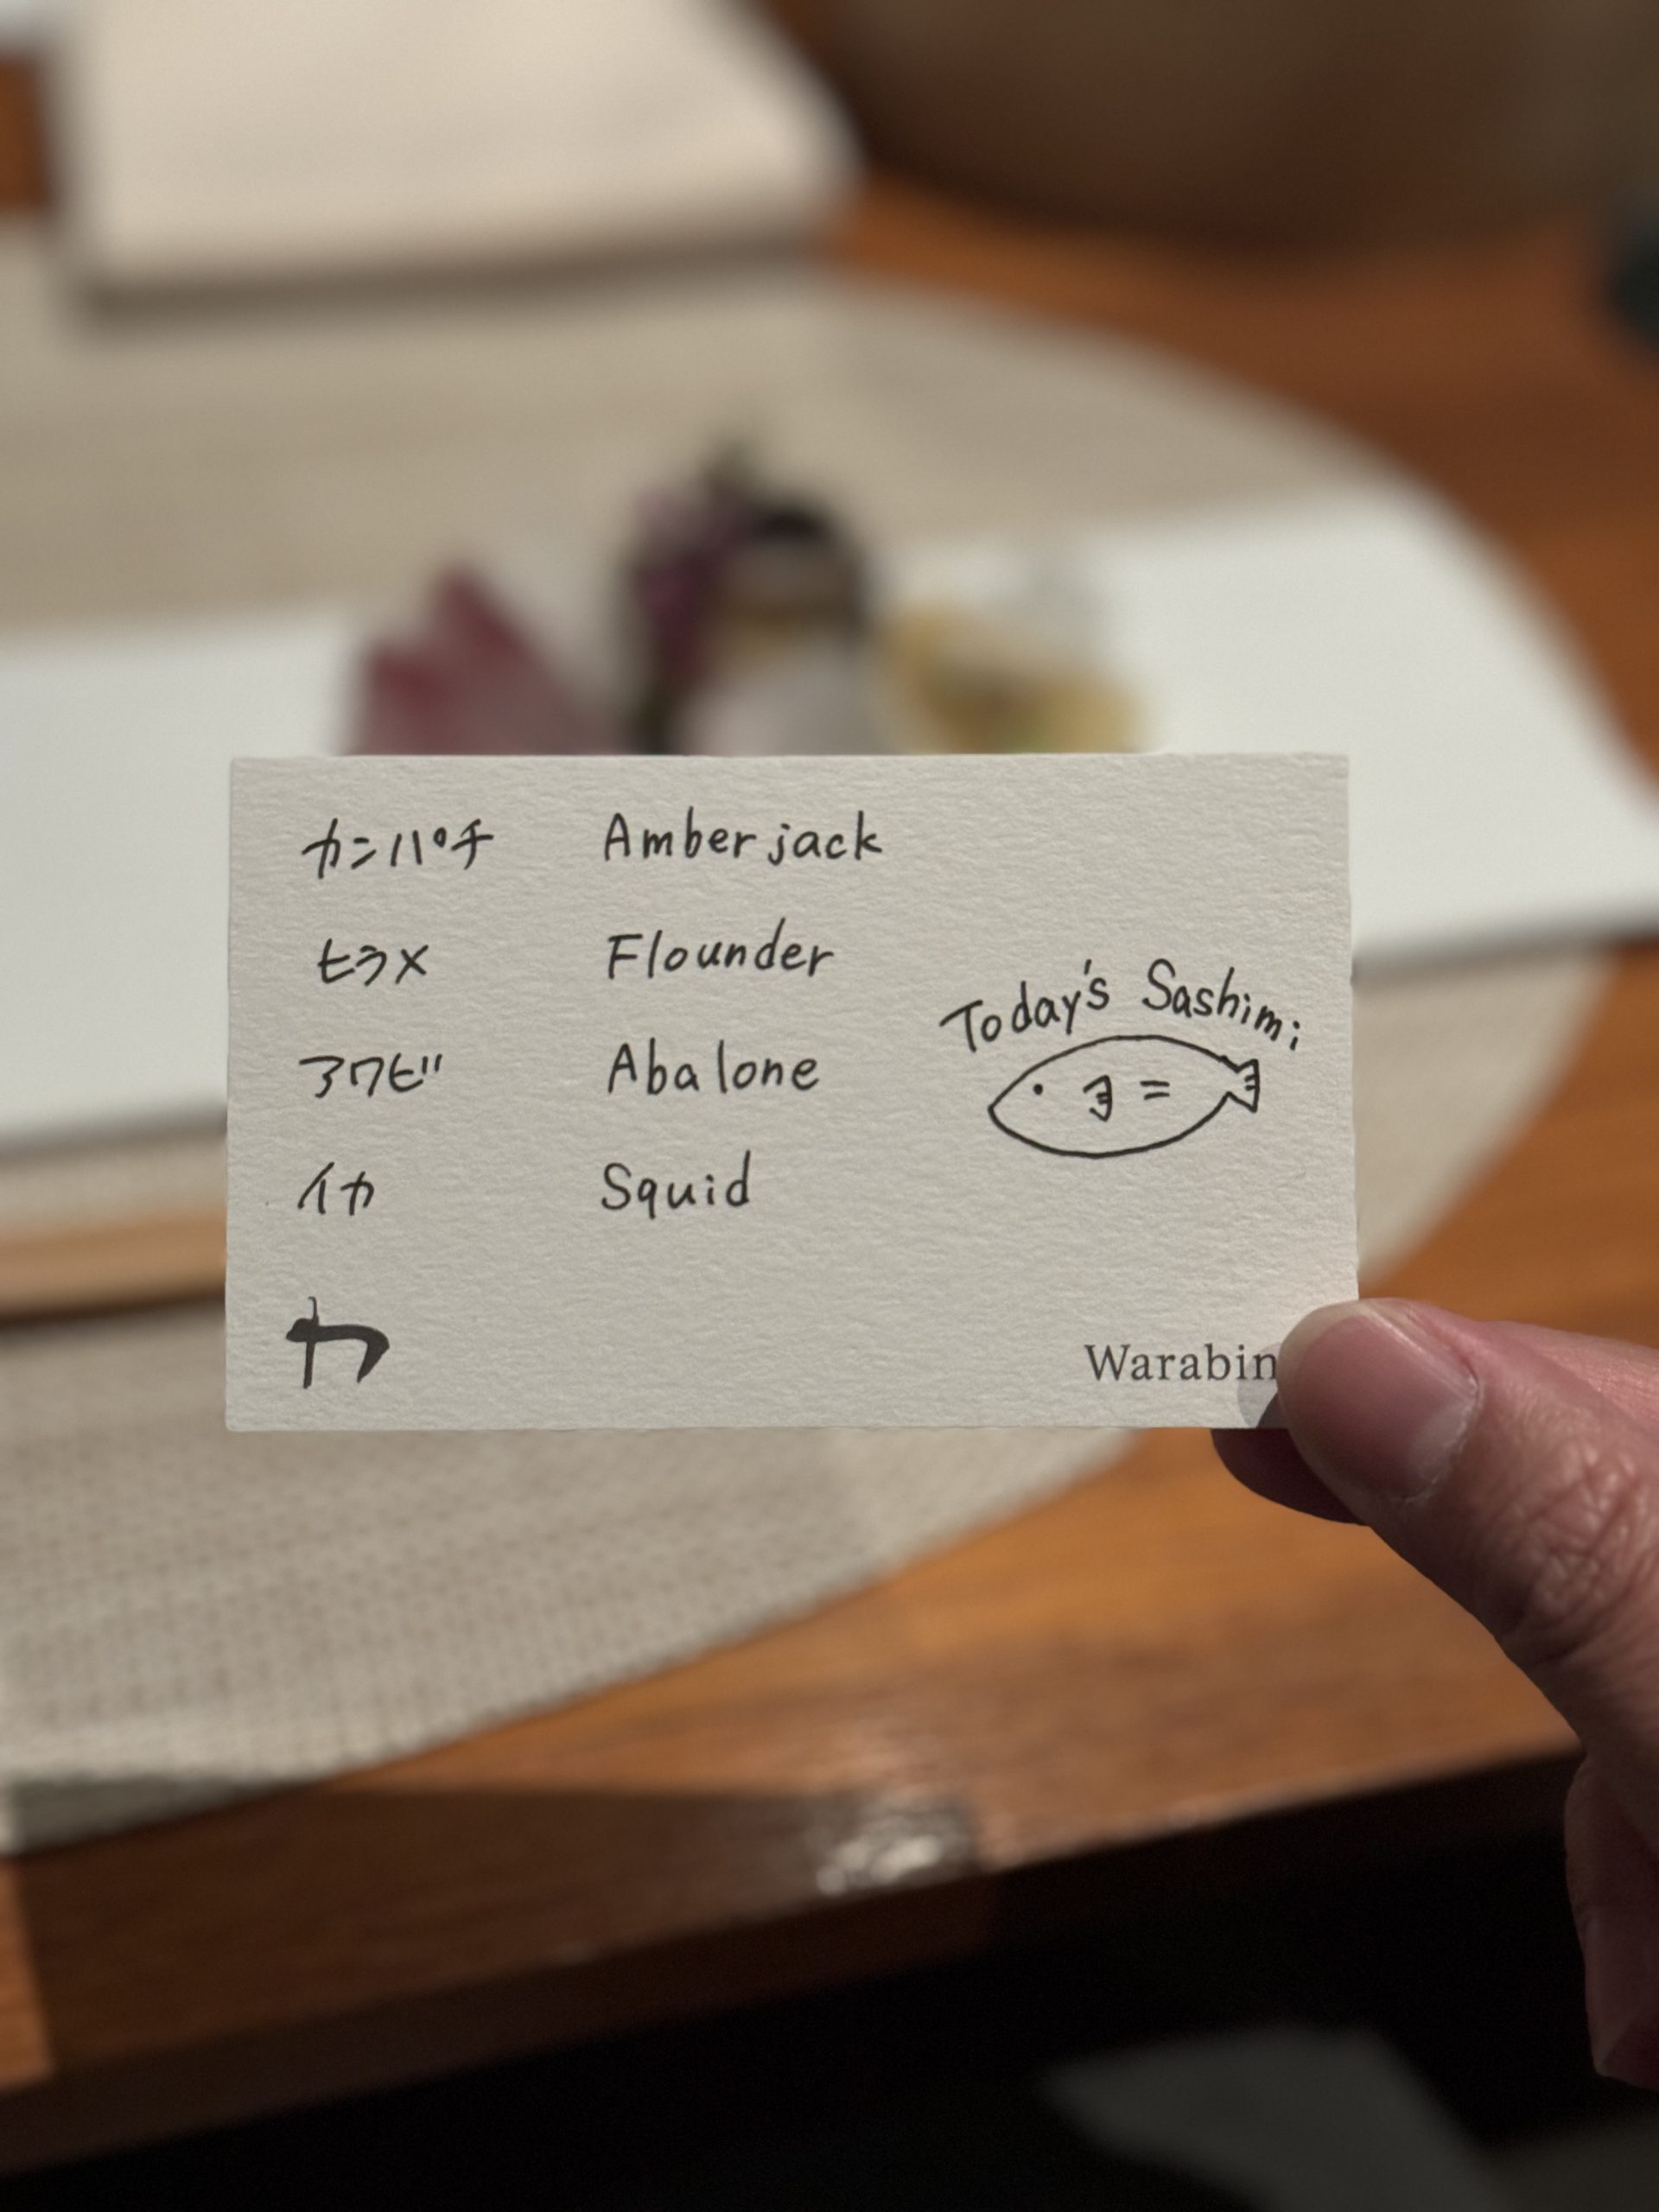 カンパチ Amberjack
ヒラメ Flounder
アワビ Abalone
イカ Squid
Today's Sashimi
わ